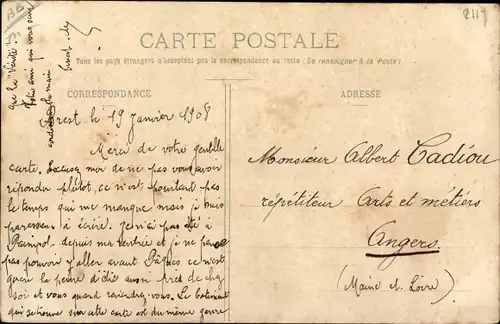 2117
CARTE POSTALE
Tous les pays étrangers n'acceptent pas la correspondance au recto (Se renseigner à la Poste)
CORRESPONDANCE
ADRESSE
Brest le 19 Janvier 1908
Merci de votre gentille
carte. Excusez moi de ne pas vous avoir
répondu plutôt, ce n'est pourtant pas
le temps qui me manque mais je suis
paresseux à écrire. Je n'ai pas été à
Paimpol depuis ma rentrée et je ne pense
pas pouvoir y aller avant Pâques ce n'est
guère la peine d'être aussi près de chez
soi et vous quand reviendrez-vous. Le bâtiment
qui se trouve sur cette carte est du même genre
que la "Vérité".
Votre ami qui vous serre
cordialement la main
Monsieur Albert Cadiou
répétiteur Arts et métiers
Angers
(Maine et Loire)